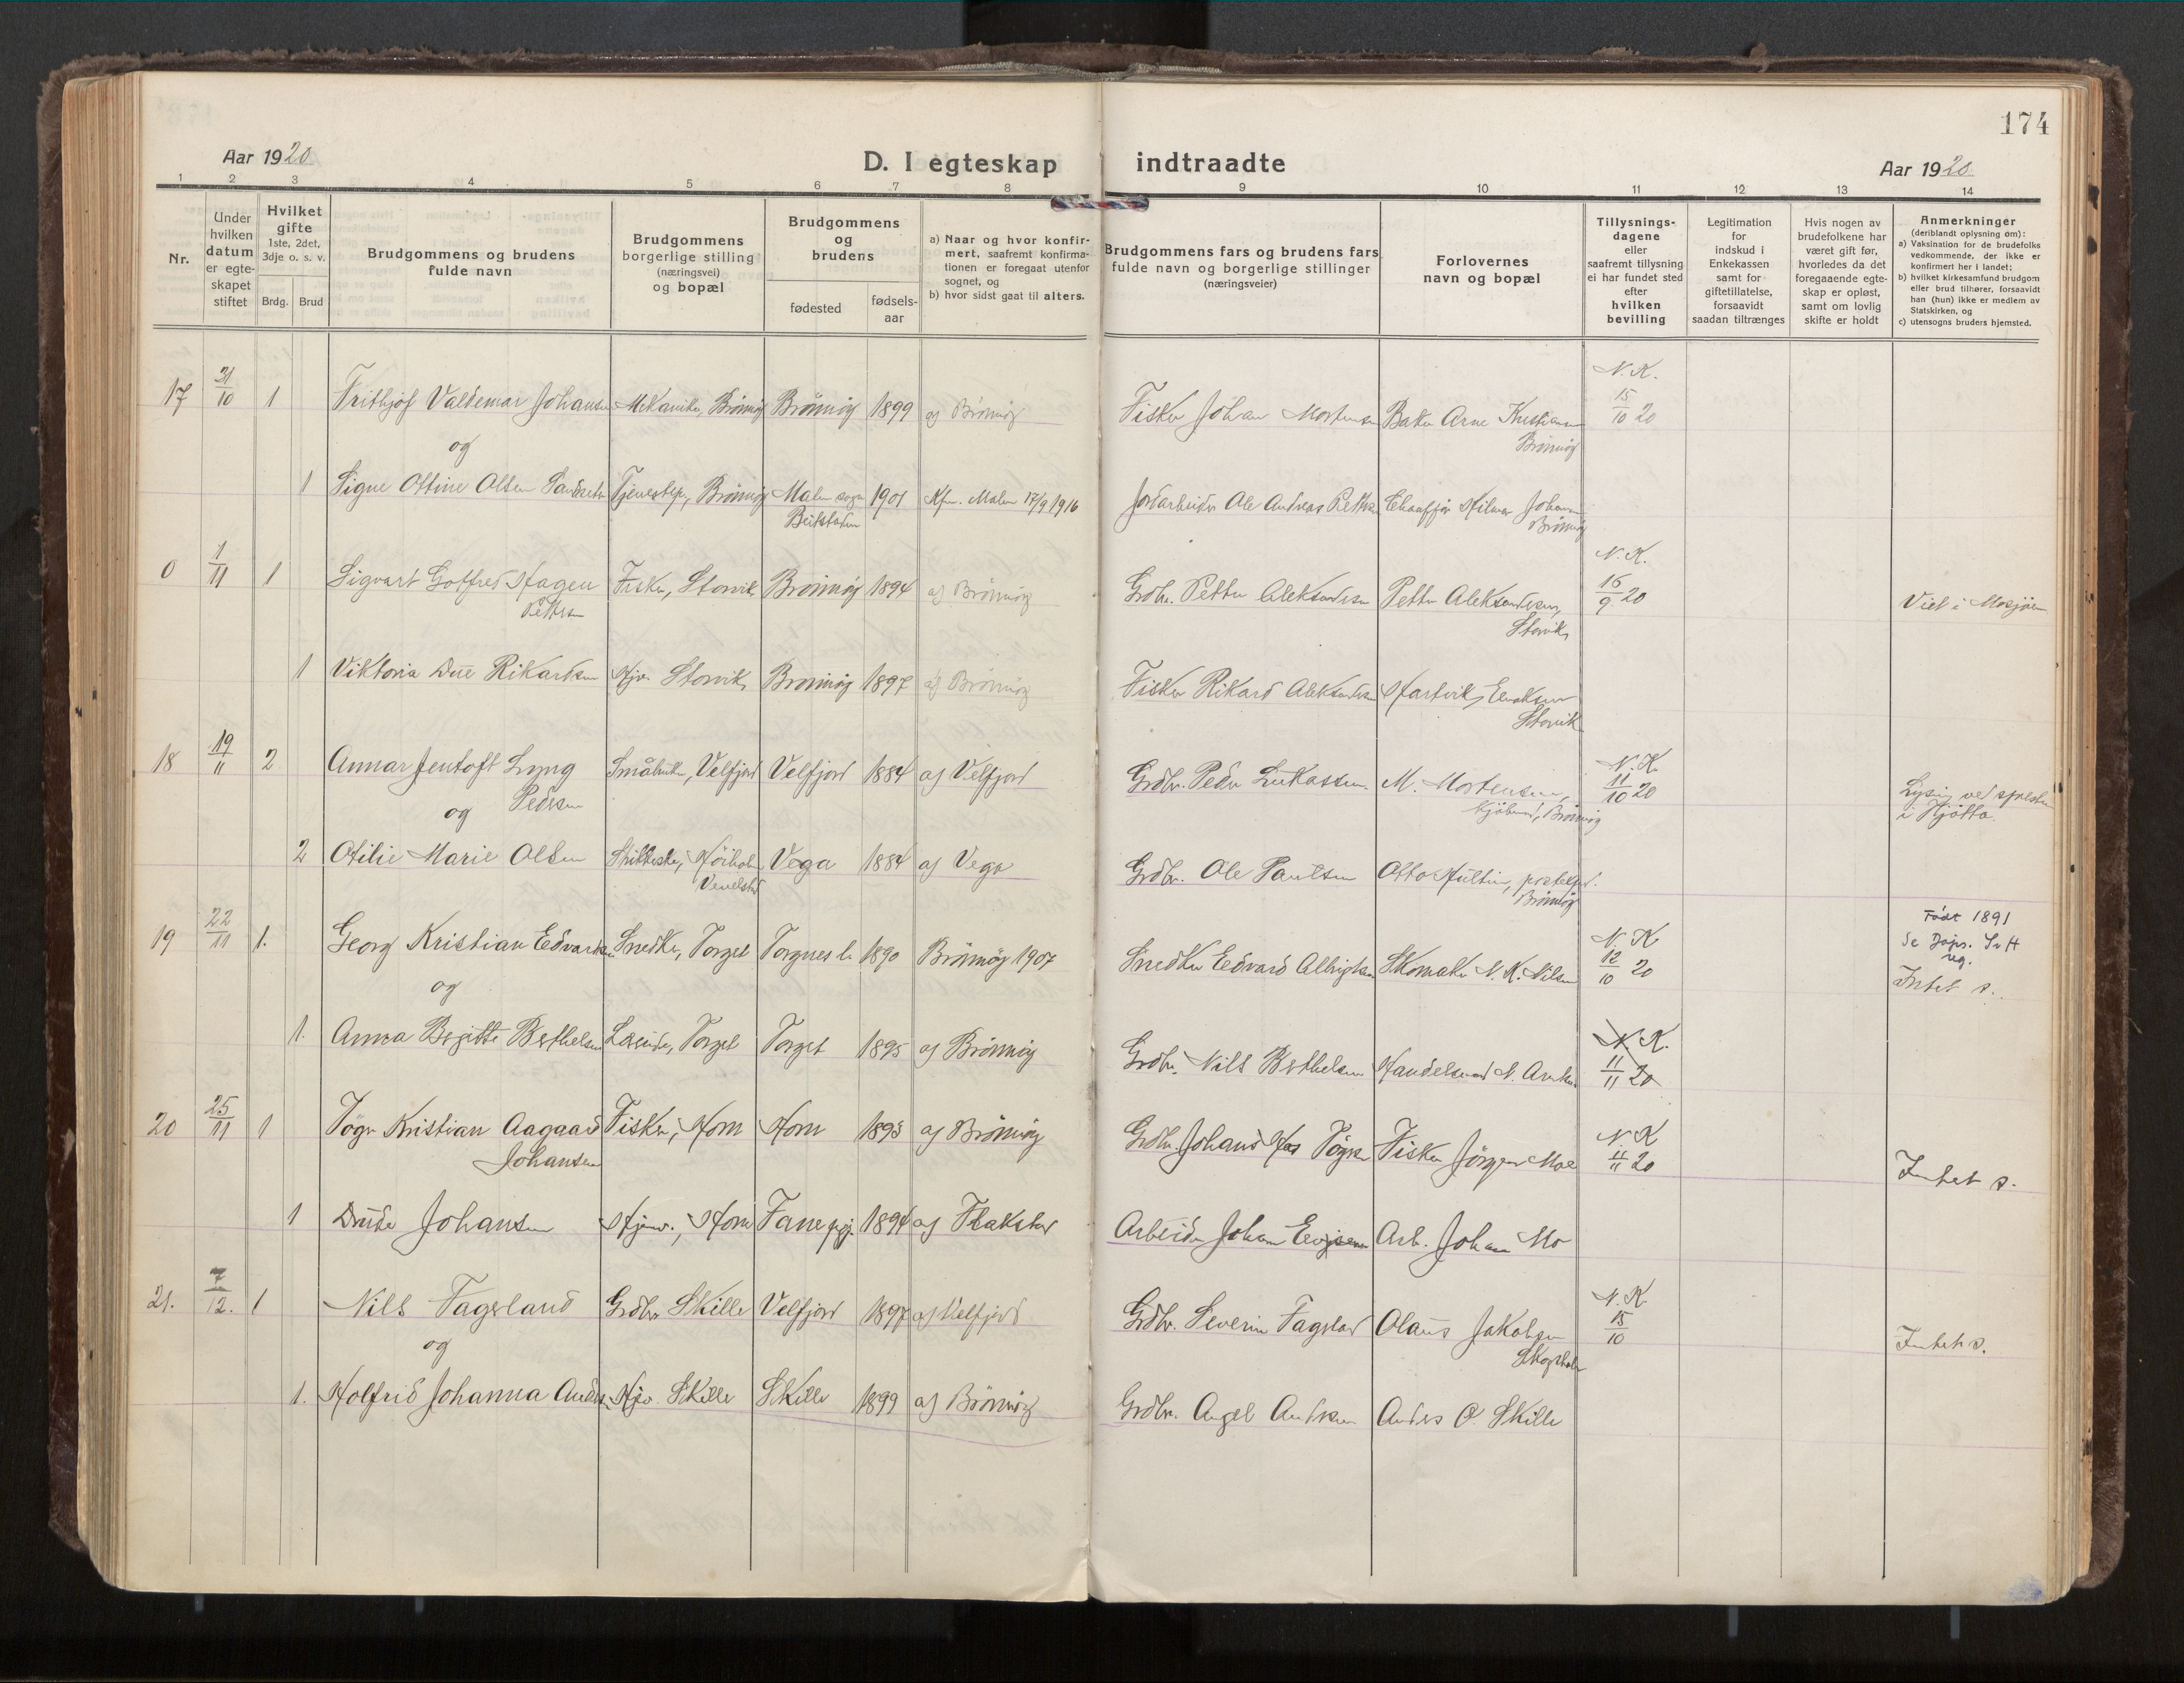 174
Aar 1920
D. I egteskap indtraadte
Aar 1920
1 2 3 4 5 6 7 8 9 10 11 12 13 14
Nr.
Under hvilken datum er egteskapet stiftet
Hvilket gifte 1ste, 2det, 3dje o. s. v.
Brdg. Brud
Brudgommens og brudens fulde navn
Brudgommens borgerlige stilling (næringsvei) og bopæl
Brudgommens og brudens
fødested
fødselsaar
a) Naar og hvor konfirmert, saafremt konfirmationen er foregaat utenfor sognet, og
b) hvor sidst gaat til alters.
Brudgommens fars og brudens fars fulde navn og borgerlige stillinger (næringsveier)
Forlovernes navn og bopæl
Tillysningsdagene eller saafremt tillysning ei har fundet sted efter hvilken bevilling
Legitimation for indskud i Enkekassen samt for giftetillatelse, forsaavidt saadan tiltrænges
Hvis nogen av brudefolkene har været gift før, hvorledes da det foregaaende egteskap er opløst, samt om lovlig skifte er holdt
Anmerkninger (deriblandt oplysning om):
a) Vaksination for de brudefolks vedkommende, der ikke er konfirmert her i landet;
b) hvilket kirkesamfund brudgom eller brud tilhører, forsaavidt han (hun) ikke er medlem av Statskirken, og
c) utensogns bruders hjemsted.
17 31/10 1 Frithjof Valdemar Johansen Mekaniker, Brönnöy Brönnöy 1899 af Brönnöy Fisker Johan Mortensen Baker Arne Kristiansen Brönnöy N. K. 15/10 20
og
1 Signe Ottine Olsen Tjenestepi, Brönnöy Malm sogn Beitstaden 1901 Kfm. Malm 17/9 1916 Jordarbeider Ole Andreas Chauffør Hilmar Johansen Brönnöy
0 1/11 1 Sigvart Gotfred Hagen Pettersen Fisker, Storvik Brönnöy 1894 af Brönnöy Grdbr. Petter Aleksandersen Petter Aleksandersen, Storvik N. K. 16/9 20 Viet i Mosjöen
1 Viktoria Due Rikardsen Hjv. Storvik Brönnöy 1897 af Brönnöy Fisker Rikard Aleksandersen Hartvik Storvik
18 19/11 2 Annar Jentoft Lyng Pedersen Småbruker, Velfjord Velfjord 1884 af Velfjord Grdbr. Peder Lukassen M. Mortensen, Kjöbmd, Brönnöy N. K. 11/10 20 Lysing ved sprest i Tjötta.
og
2 Otilie Marie Olsen Höiholm Vevelstad Vega 1884 af Vega Grdbr. Ole Paulsen Otto Hultin, postekspd. Brönnöy
19 22/11 1. Georg Kristian Edvardsen Snedker, Torget Torgnes 1890 Brönnöy 1907 Snedker Edvard Albrigtsen Skomaker N. K. Nilsen N. K 12/10 20 Født 1891 Se Dåps. reg. Intet s.
og
1. Anna Bergitte Berthelsen Torget Torget 1895 af Brönnöy Grdbr. Nils Berthelsen Handelsmand N. N. K. 11/11 20
20 25/11 1 Töger Kristian Aagaard Johansen Fisker, Horn Horn 1893 af Brönnöy Grdbr. Johans Töger Fisker Jörgen Moe N. K 11/11 20 Intet s.
1 Drude Johansen Hjem., Horn Fane 1894 af Flakstad Arbeider Johan Arb. Johan Mo
21. 7/12. 1 Nils Fagerland Grdbr Skille Velfjord 1897 af Velfjord Grdbr. Severin Fagerland Olaus Jakobsen Skogsholm N. K. 15/10 Intet s.
og
1. Holfrid Johanna Andersen Hjv. Skille Skille 1899 af Brönnöy Grdbr. Angel Andersen Anders O. Skille